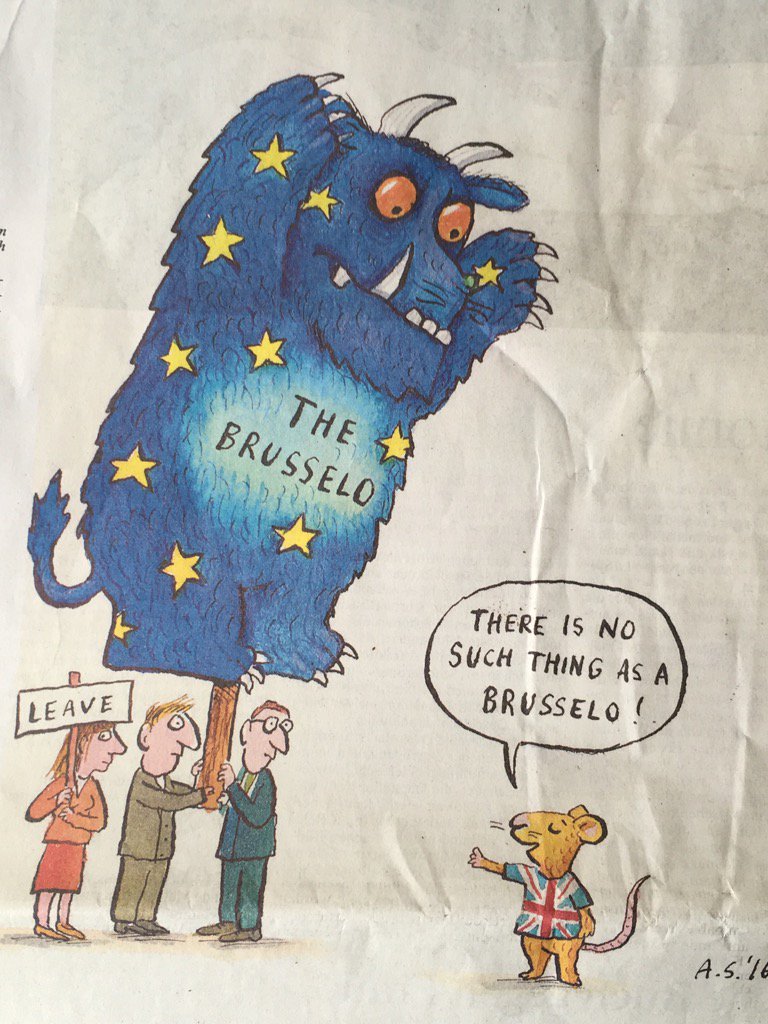 THE
BRUSSELO
LEAVE
THERE IS NO
SUCH THING AS A
BRUSSELO!
A.S.'16